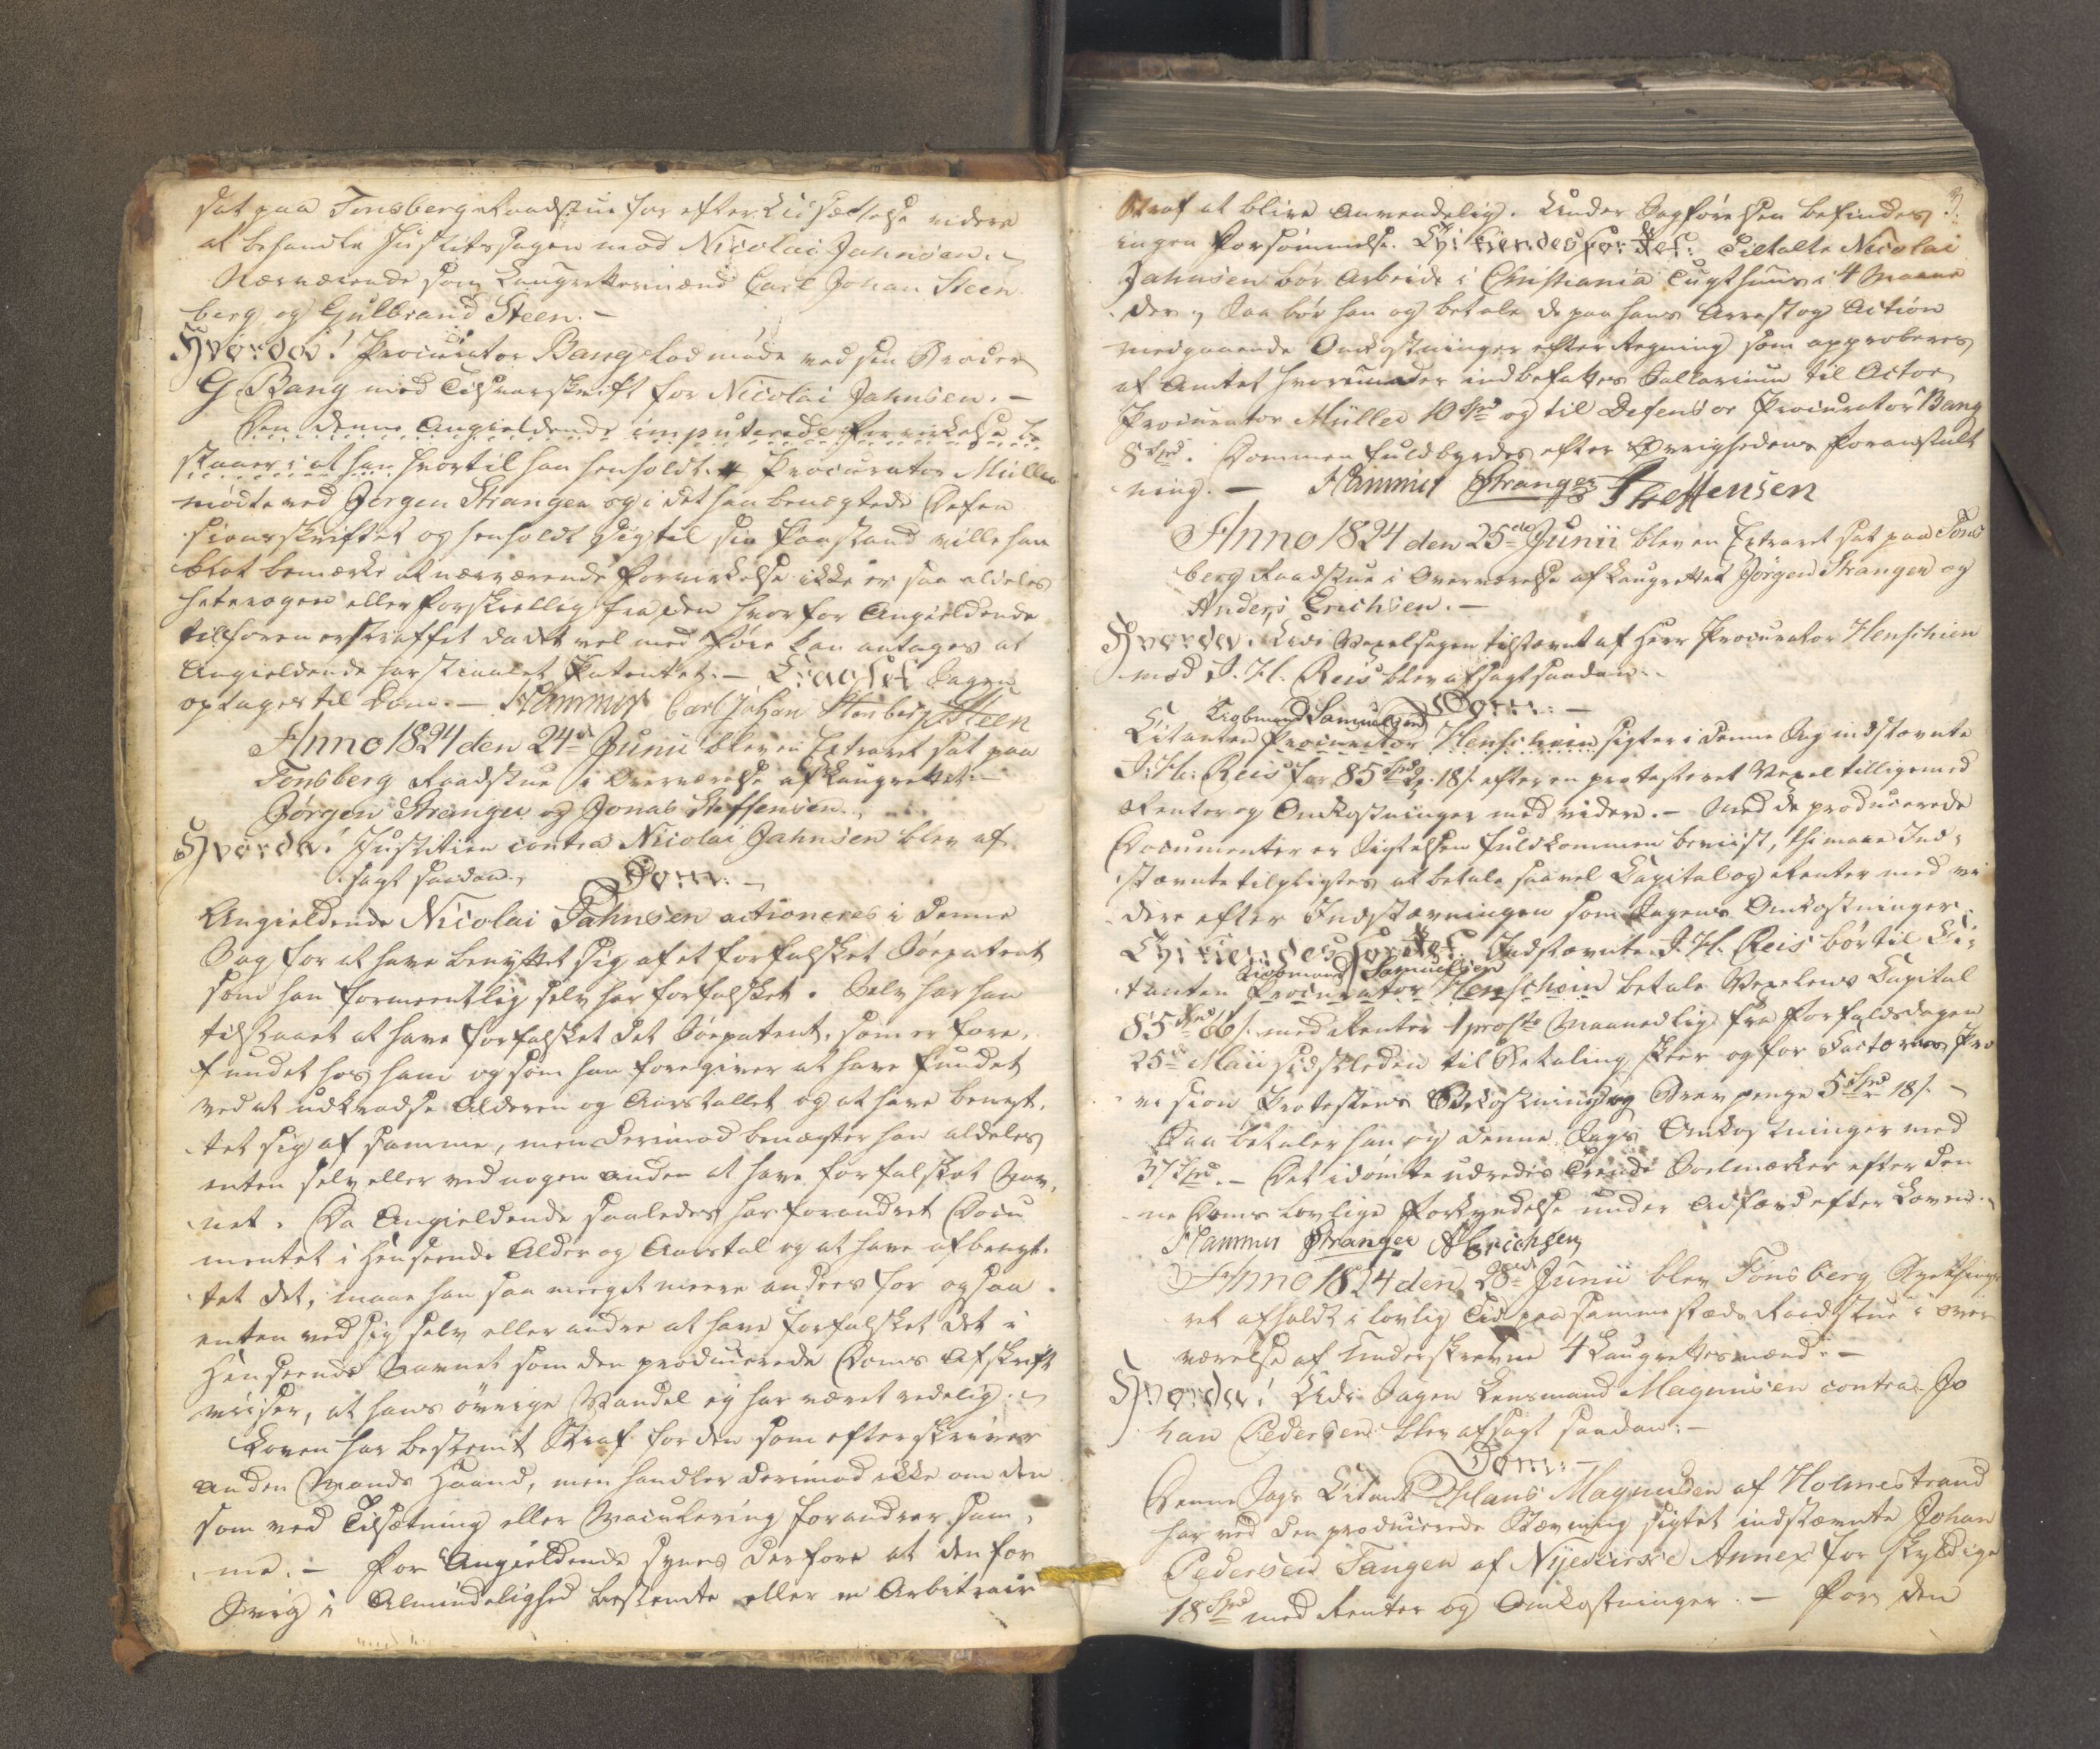 sat paa Tonsberg Raadstue for efter Udsættelse videre
at behandle Justitssagen mod Nicolai Jahnsen.
Nærværende som Laugrettesmænd Carl Johan Steen
berg og Gulbrand Steen. -
Hvorda! Procurator Bang lod møde ved sin Broder
G Bang med Tilsvarskrift for Nicolai Jahnsen. -
Den denne Angieldende imputerede Forvirkelse be
staaer i at han hvortil han henholdt. Procurator Müller
mødte ved Jørgen Stranger og i det han benægtede Defen
sionsskriftet og henholdt sig til sin Paastand ville han
blot bemærke at nærværende Forvirkelse ikke er saa aldeles
heterogen eller forskiellig fra den hvorfor Angieldende
tilforen er straffet da det vel med Føie kan antages at
Angieldende har stiaalet Patentet. - Eragtet Sagen
optages til Dom. - Hammer Carl Johan Stenberg GSteen
Anno 1824 den 24de Junii blev en Extraret sat paa
Tonsberg Raadstue i Overværelse af Laugrettet
Jørgen Stranger og Jonas Steffensen.
Hvorda! Justitien contra Nicolai Jahnsen blev af
sagt saadan
Dom: -
Angieldende Nicolai Jahnsen actioneres i denne
Sag for at have benyttet sig af et forfalsket Søepatent
som han formeentlig selv har forfalsket. Selv har han
tilstaaet at have forfalsket det Søepatent, som er fore,
fundet hos ham og som han foregiver at have fundet
ved at udkradse Alderen og Aarstallet og at have benyt,
tet sig af samme, men derimod benægter han aldeles
enten selv eller ved nogen anden at have forfalsket Nav,
net. Da Angieldende saaledes har forandret Docu
mentet i Henseende Alder og Aarstal og at have afbenyt,
tet det, maae han saa meget meere ansees for ogsaa
enten ved sig selv eller andre at have forfalsket det i
Henseende Navnet som den producerede Doms Afskrift
viiser, at hans øvrige Vandel ej har været redelig.
Loven har bestemt Straf for den som efterskriver
anden Mands Haand, men handler derimod ikke om den
som ved Tilsætning eller forandrer sam,
me. - For Angieldende synes derfore at den for
Svig i Almindelighed bestemte eller en Arbitrair
3.
Straf at blive anvendelig. Under Sagførelsen befindes
ingen Forsømmelse. Thi kiendes for Ret: Tiltalte Nicolai
Jahnsen bør arbeide i Christiania Tugthuus i 4 Maane
der, saa bør han og betale de paa hans Arrest og Action
medgaaende Omkostninger efter Regning som approberes
af Amtet hvorunder indbefattes Sallarium til Actor
Procurator Müller 10 Spd og til Defensor Procurator Bang
8 Spd. Dommen fuldbyrdes efter Øvrighedens Foranstalt
ning. - Hammer Stranger Steffensen
Anno 1824 den 25de Junii blev en Extraret sat paa Tons
berg Raadstue i Overværelse af Laugrettet Jørgen Stranger og
Anders Erichsen. -
Hvorda. Udi Vexelsagen tilstævnt af Herr Procurator Henschien
mod J. H. Reis blev afsagt saadan
Dom: -
Kiøbmand Samuelsen
Citanten Procurator Henschein sigter i denne Sag indstævnte
J. H. Reis for 85 Spd 18 s. efter en protesteret Vexel tilligemed
Renter og Omkostninger med videre. - Med de producerede
Documenter er Sigtelsen fuldkommen beviist, thi maae Ind,
stævnte tilpligtes at betale saavel Capital og Renter med vi
dere efter Indstævningen som Sagens Omkostninger.
Thi kiendes for Ret: Indstævnte J. H. Reis bør til Ci,
Kiøbmand Samuelsen
tanten Procurator Henschein betale Vexelens Capital
85 Spd 66 s. med Renter 1 pro Cto Maanedlig fra Forfaldsdagen
25de Maii sidstleden til Betaling skeer og for Factorens Pro
vision Protestens Bekostning og Brevpenge 5 Spd 18 s. -
Saa betaler han og denne Sags Omkostninger med
37 Spd. - Det idømte udredes trende Solmærker efter den
ne Doms lovlige Forkyndelse under Adfærd efter Loven.
Hammer Stranger AErichsen
Anno 1824 den 28de Junii blev Tonsberg
ret afholdt i lovlig Tid paa samme Steds Raadstue i Over
værelse af Underskrevne 4 Laugrettesmænd. -
Hvorda! Udi Sagen Lensmand Magnusen contra Jo
han Pedersen blev afsagt saadan. -
Dom: -
Denne Sags Citant Hans Magnusen af Holmestrand
har ved den producerede Stævning sigtet indstævnte Johan
Pedersen Tangen af Nyekirke Annex for skyldige
18 Spd med Renter og Omkostninger. - For den